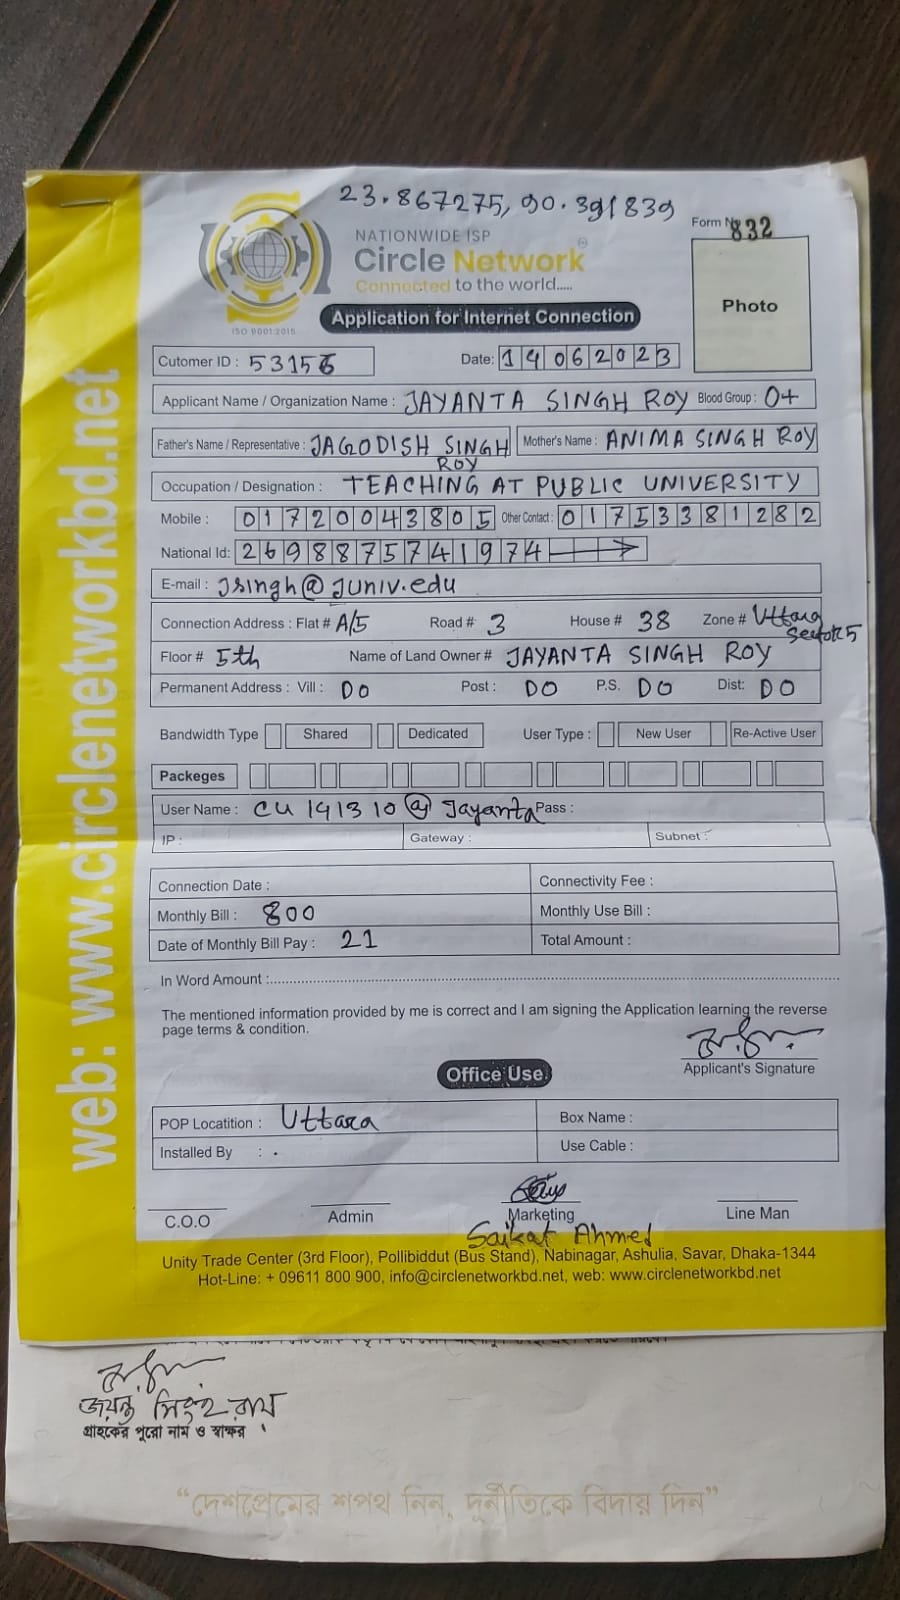 23.867275, 90.391839
Form No 832
NATIONWIDE ISP
Circle Network
Connected to the world.....
ISO 9001:2015
Photo
Application for Internet Connection
Cutomer ID : 53156 Date: 14062023
Applicant Name / Organization Name : JAYANTA SINGH ROY Blood Group : O+
Father's Name / Representative : JAGODISH SINGH ROY Mother's Name : ANIMA SINGH ROY
Occupation / Designation : TEACHING AT PUBLIC UNIVERSITY
Mobile : 01720043805 Other Contact : 01753381282
National Id: 2698875741974
E-mail : Jsingh@juniv.edu
Connection Address : Flat # A/5 Road # 3 House # 38 Zone # Uttara Sector 5
Floor # 5th Name of Land Owner # JAYANTA SINGH ROY
Permanent Address : Vill : DO Post : DO P.S. DO Dist: DO
Bandwidth Type Shared Dedicated User Type : New User Re-Active User
Packeges
User Name : CU 191310 @ Jayanta Pass :
IP : Gateway : Subnet :
Connection Date : Connectivity Fee :
Monthly Bill : 800 Monthly Use Bill :
Date of Monthly Bill Pay : 21 Total Amount :
In Word Amount :
The mentioned information provided by me is correct and I am signing the Application learning the reverse
page terms & condition.
Applicant's Signature
Office Use
POP Locatition : Uttara Box Name :
Installed By : . Use Cable :
C.O.O Admin Marketing Line Man
Saikat Ahmed
Unity Trade Center (3rd Floor), Pollibiddut (Bus Stand), Nabinagar, Ashulia, Savar, Dhaka-1344
Hot-Line: + 09611 800 900, info@circlenetworkbd.net, web: www.circlenetworkbd.net
web: www.circlenetworkbd.net
জয়ন্ত সিংহ রায়
গ্রাহকের পুরো নাম ও স্বাক্ষর
“দেশপ্রেমের শপথ নিন, দূর্নীতিকে বিদায় দিন”